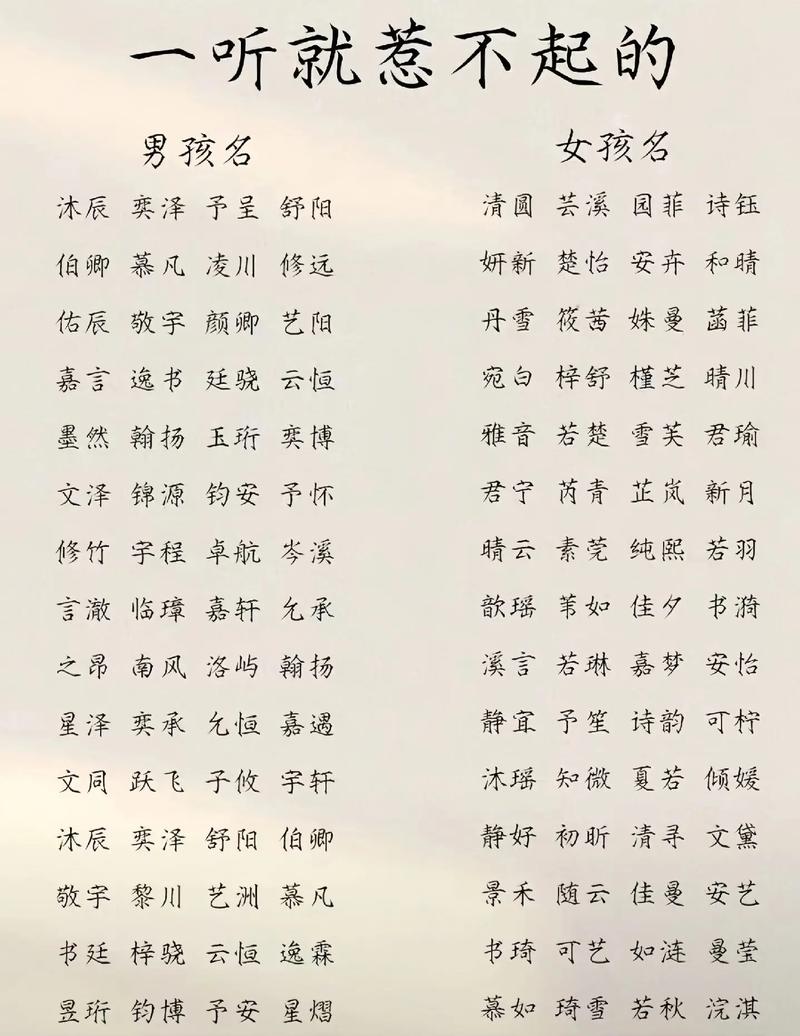 一听就惹不起的
男孩名
沐辰 奕泽 予呈 舒阳
伯卿 慕凡 凌川 修远
佑辰 敬宇 颜卿 艺阳
嘉言 逸书 廷骁 云恒
墨然 翰扬 玉珩 奕博
文泽 锦源 钧安 予怀
修竹 宇程 卓航 岑溪
言澈 临璋 嘉轩 允承
之昂 南风 洛屿 翰扬
星泽 奕承 允恒 嘉遇
文同 跃飞 子攸 宇轩
沐辰 奕泽 舒阳 伯卿
敬宇 黎川 艺洲 慕凡
书廷 梓骁 云恒 逸霖
昱珩 钧博 予安 星熠
女孩名
清圆 芸溪 园菲 诗钰
妍新 楚怡 安卉 和晴
丹雪 筱茜 姝曼 菡菲
宛白 梓舒 槿芝 晴川
雅音 若楚 雪芙 君瑜
君宁 芮青 芷岚 新月
晴云 素莞 纯熙 若羽
歆瑶 苇如 佳夕 书漪
溪言 若琳 嘉梦 安怡
静宜 予笙 诗韵 可柠
沐瑶 知微 夏若 倾媛
静好 初昕 清寻 文黛
景禾 随云 佳曼 安艺
书琦 可艺 如涟 曼莹
慕如 琦雪 若秋 浣淇